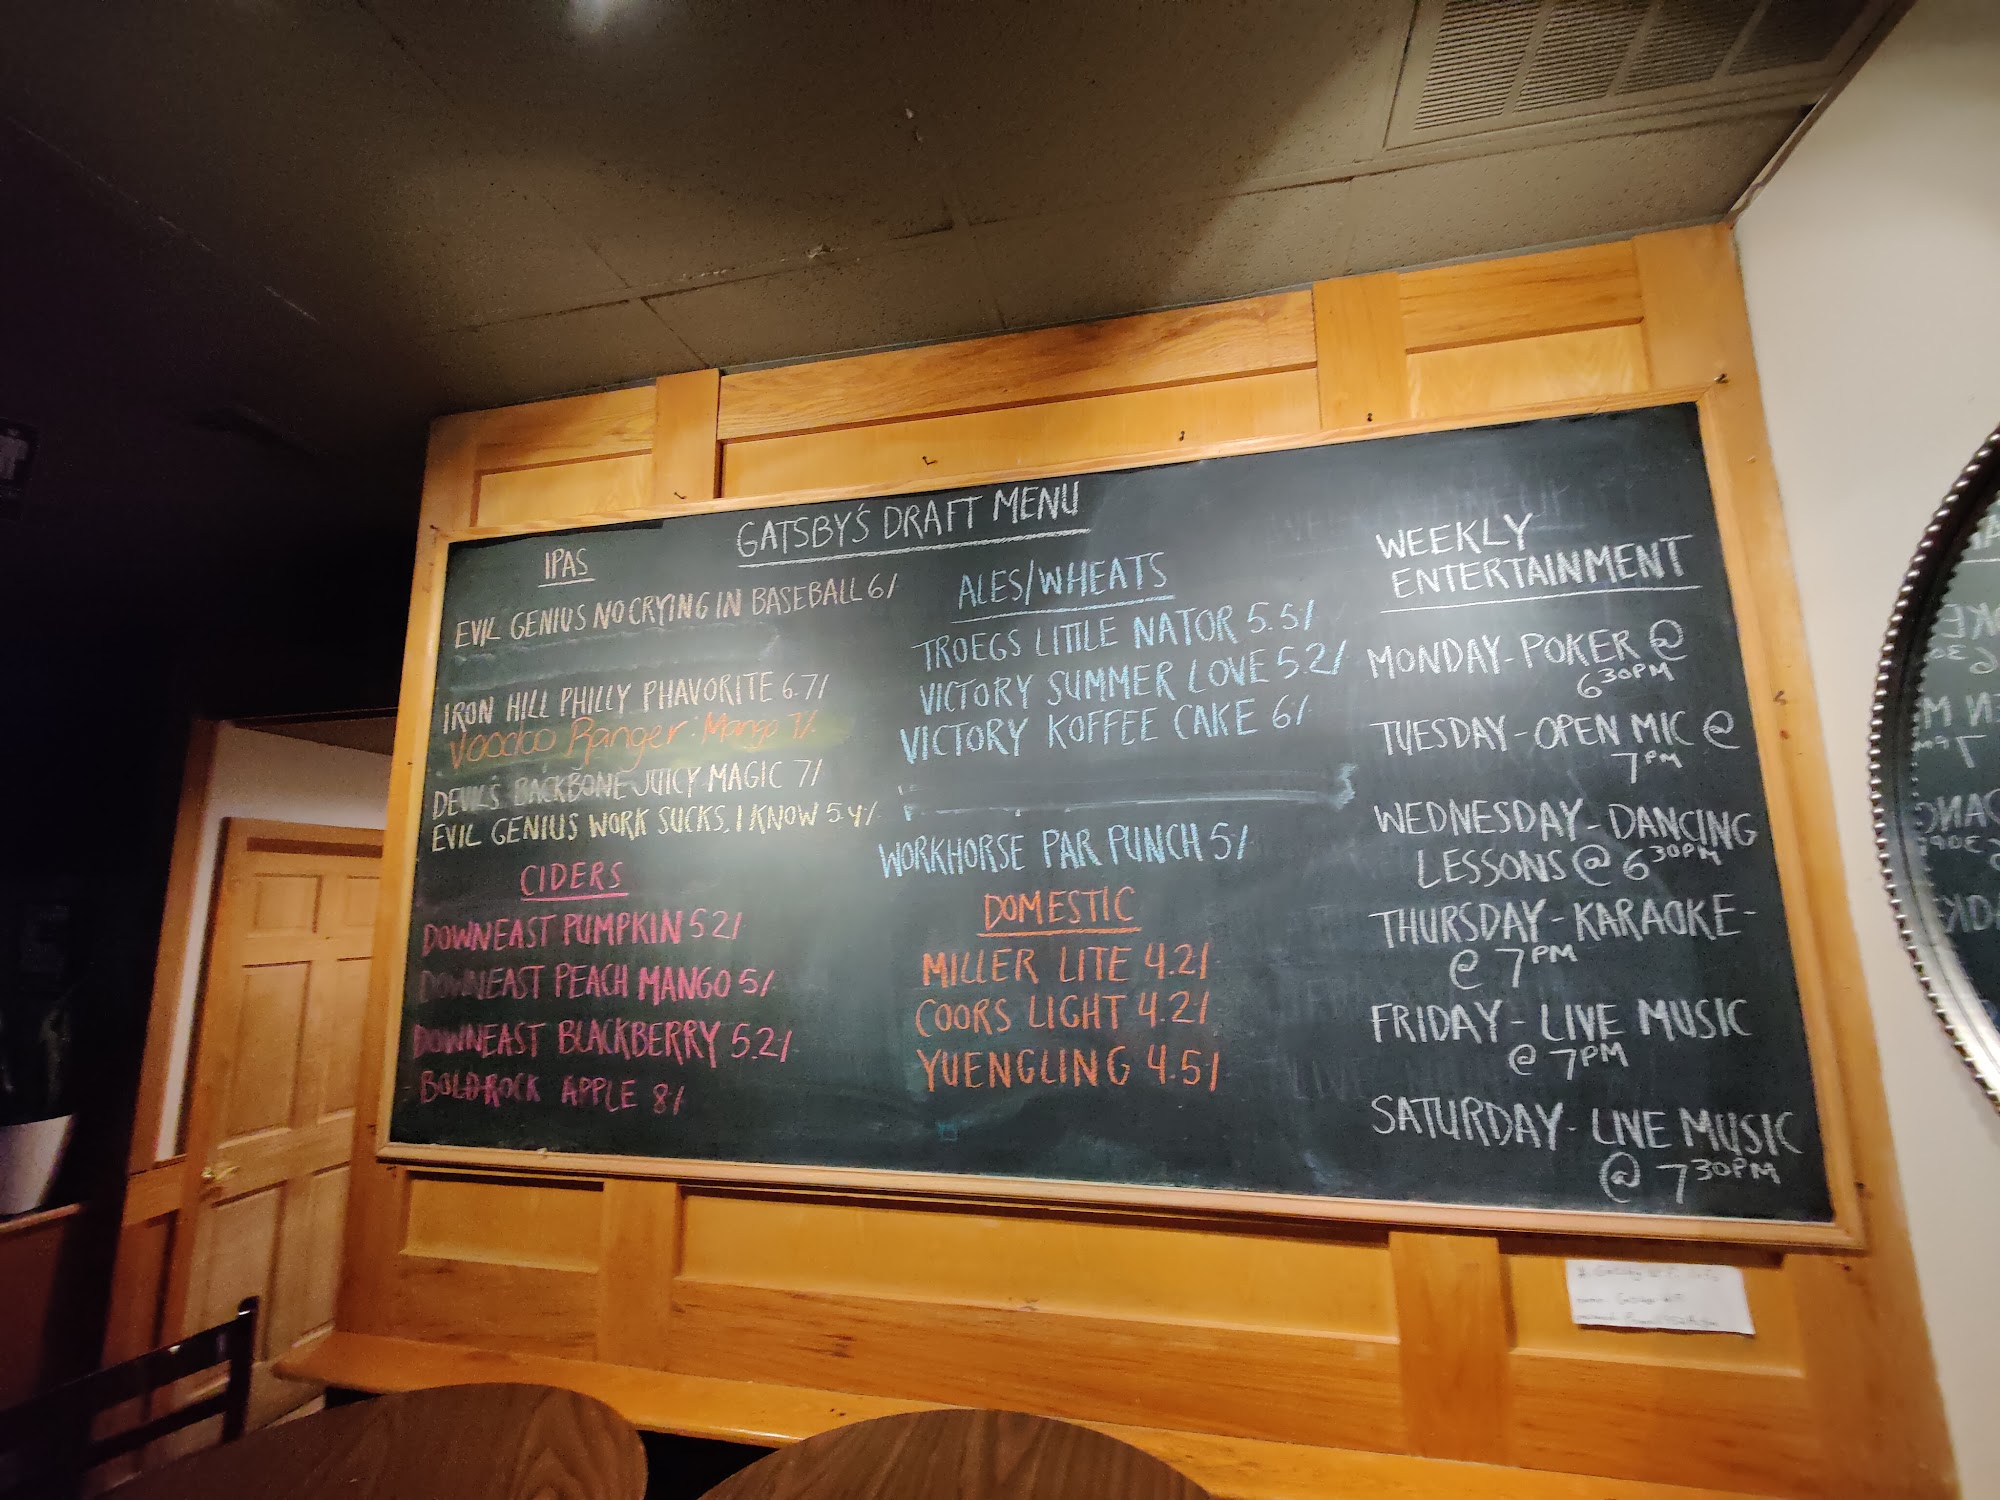 GATSBY'S DRAFT MENU
IPAS
EVIL GENIUS NO CRYING IN BASEBALL 6/
IRON HILL PHILLY PHAVORITE 6.7/
Voodoo Ranger: Mango 7/.
DEVIL'S BACKBONE JUICY MAGIC 7/
EVIL GENIUS WORK SUCKS, I KNOW 5.4/.
CIDERS
DOWNEAST PUMPKIN 5.2/.
DOWNEAST PEACH MANGO 5/.
DOWNEAST BLACKBERRY 5.2/.
BOLD ROCK APPLE 8/
ALES/WHEATS
TROEGS LITTLE NATOR 5.5/.
VICTORY SUMMER LOVE 5.2/
VICTORY KOFFEE CAKE 6/
WORKHORSE PAR PUNCH 5/.
DOMESTIC
MILLER LITE 4.2/.
COORS LIGHT 4.2/.
YUENGLING 4.5/.
WEEKLY
ENTERTAINMENT
MONDAY- POKER @
6 30PM
TUESDAY - OPEN MIC @
7PM
WEDNESDAY - DANCING
LESSONS @ 6 30PM
THURSDAY - KARAOKE -
@ 7PM
FRIDAY - LIVE MUSIC
@ 7PM
SATURDAY - LIVE MUSIC
@ 7 30PM